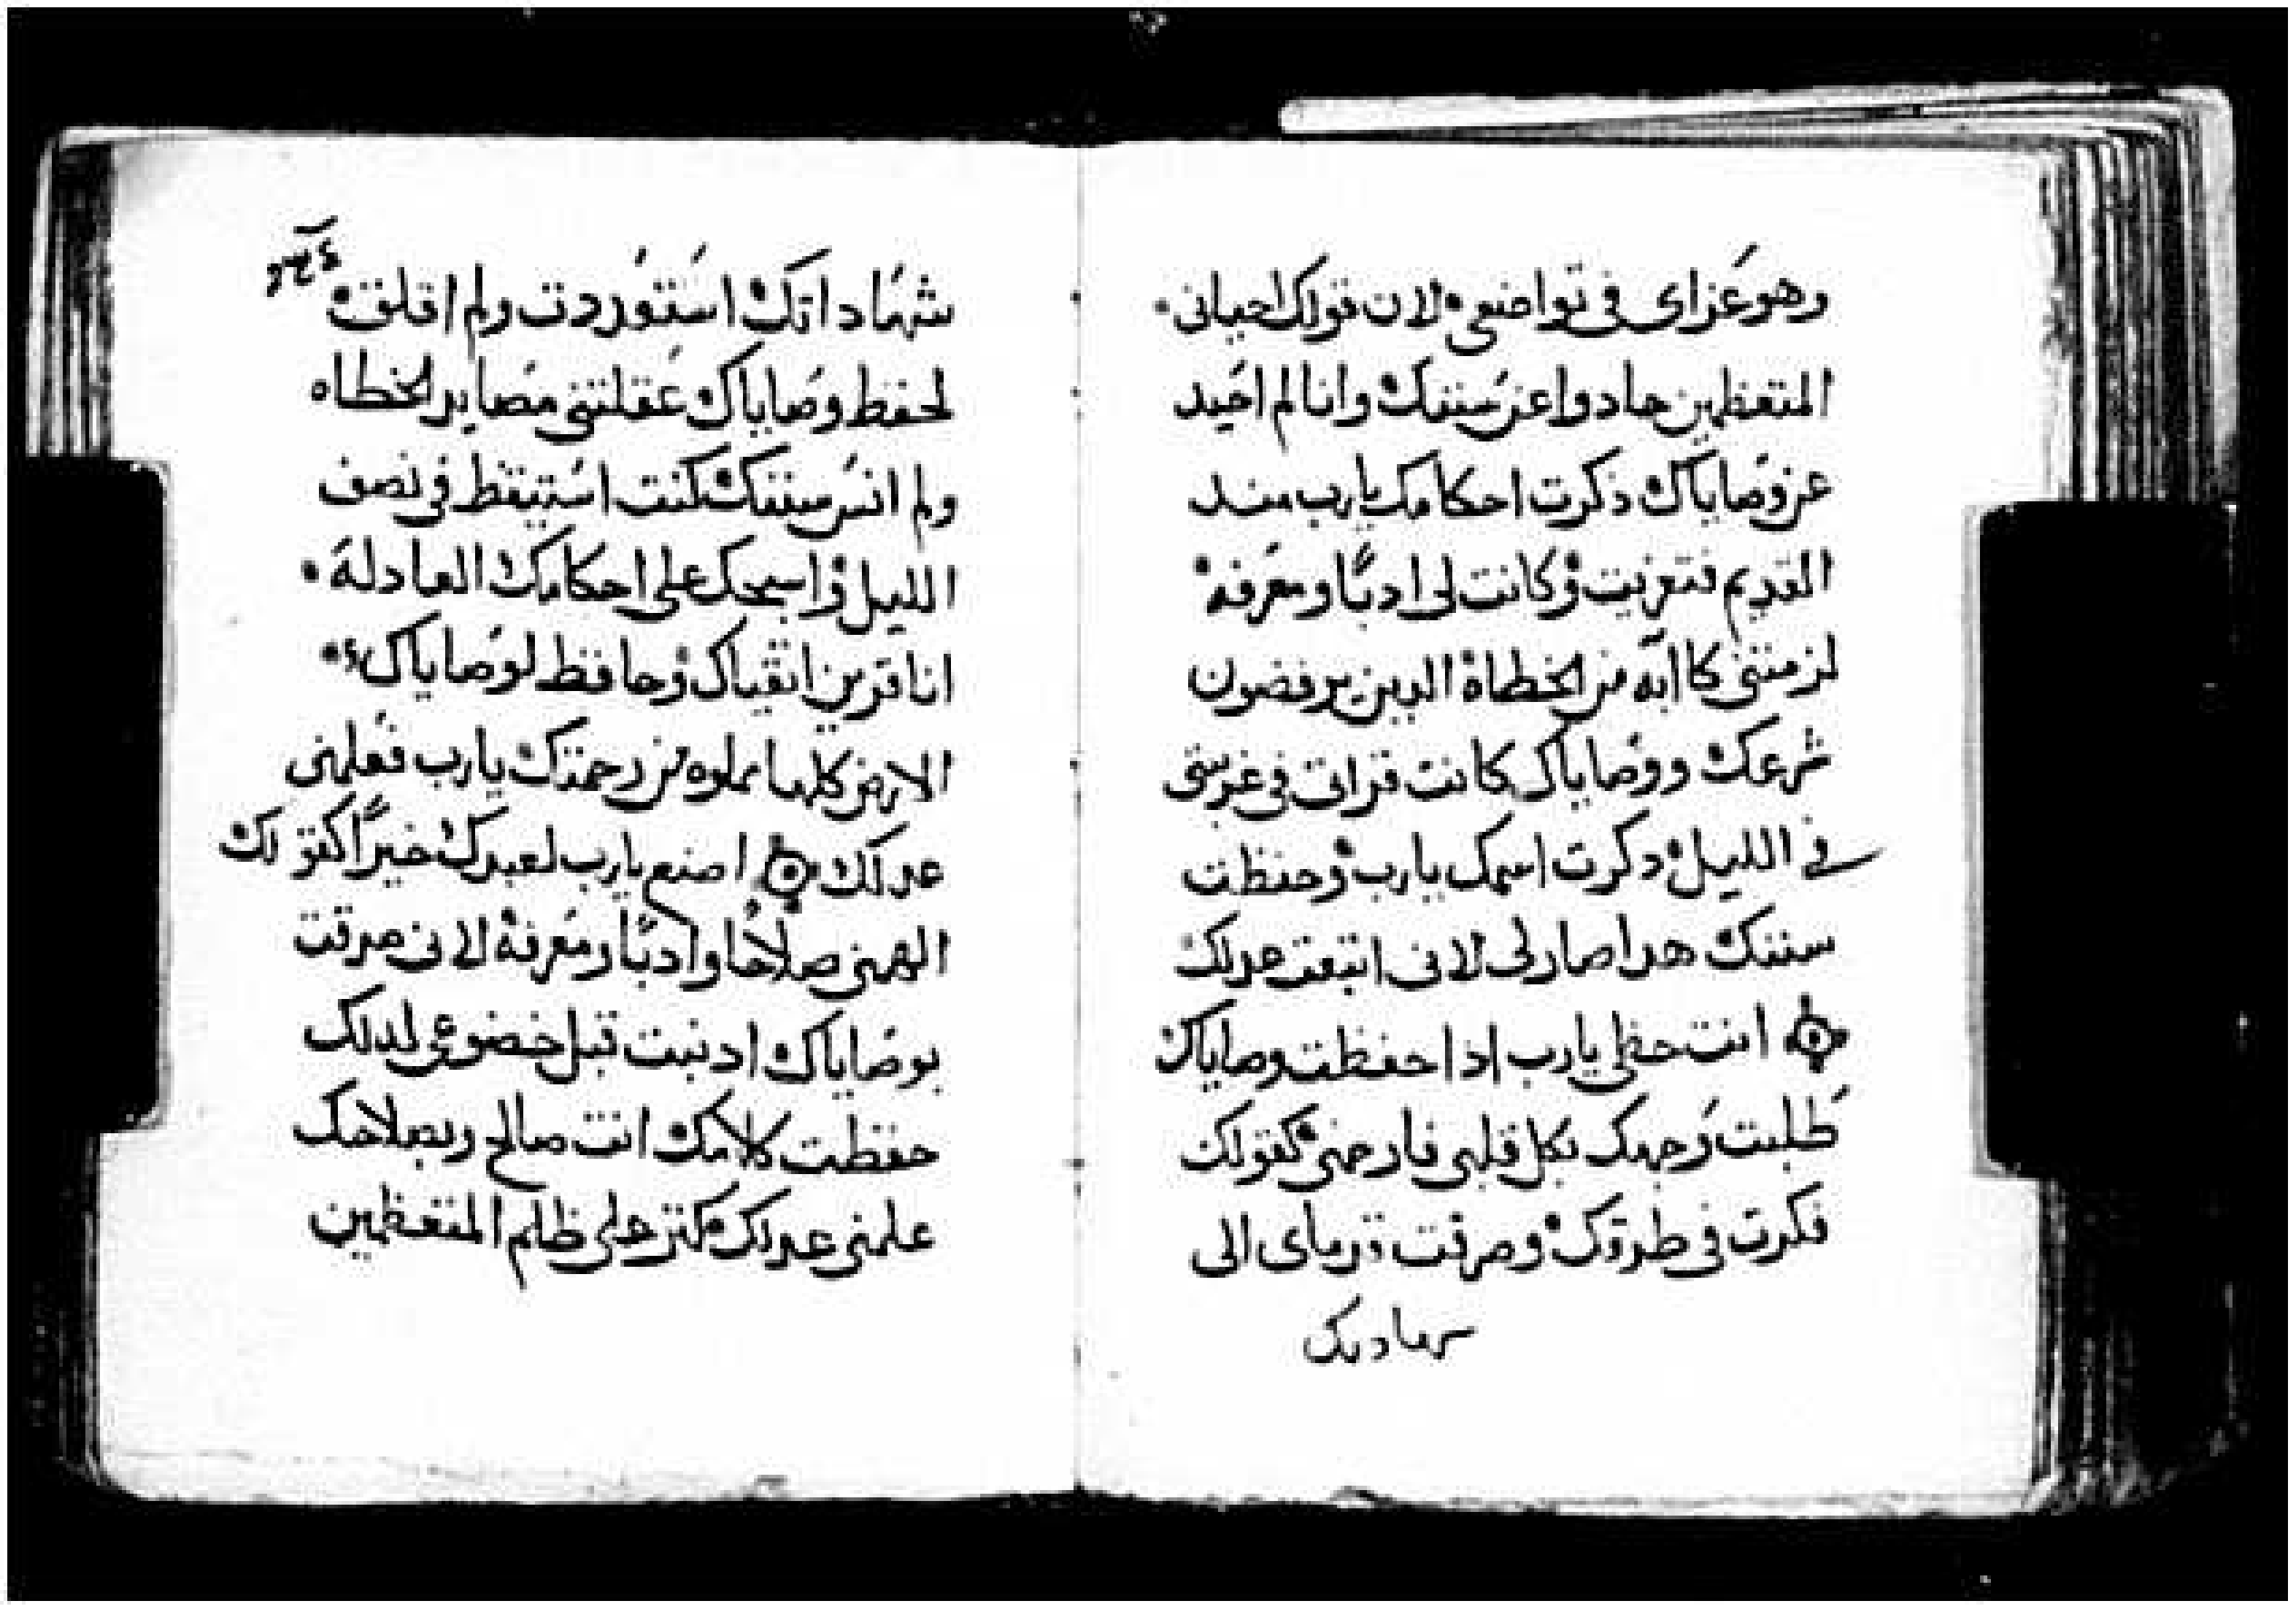 وهو عزاى فى تواضعى لان قولك احيانى
المتعظمين حادوا عن سننك وانا لم احيد
عن وصاياك ذكرت احكامك يارب منذ
القديم فتعزيت وكانت لى ادبًا ومعرفه
لزمتنى كاابه من الخطاة الدين يرفضون
شرعك ووصاياك كانت قراتى فى غربتى
فى الليل دكرت اسمك يارب وحفظت
سننك هدا صار لى لانى اتبعت عدلك
انت حظى يارب اذا حفظت وصاياك
طلبت وجهك بكل قلبى فارحمنى كقولك
فكرت فى طرقك وصرفت قدماى الى
سهاداتك
شهاداتك استوردت ولم اقلق
لحفظ وصاياك عقلتنى مصايد الخطاه
ولم انس سننك كنت استيقظ فى نصف
الليل واسبحك على احكامك العادلة
انا قرين اتقياك وحافظ لوصاياك
الارض كلها مملوه من رحمتك يارب فعلمنى
عدلك اصنع يارب لعبدك خيرًا كقولك
الهمنى صلاحًا وادبًا ومعرفة لانى صدقت
بوصاياك ادنبت قبل خضوعى لدلك
حفظت كلامك انت صالح وبصلاحك
علمنى عدلك كتر على ظلم المتعظمين